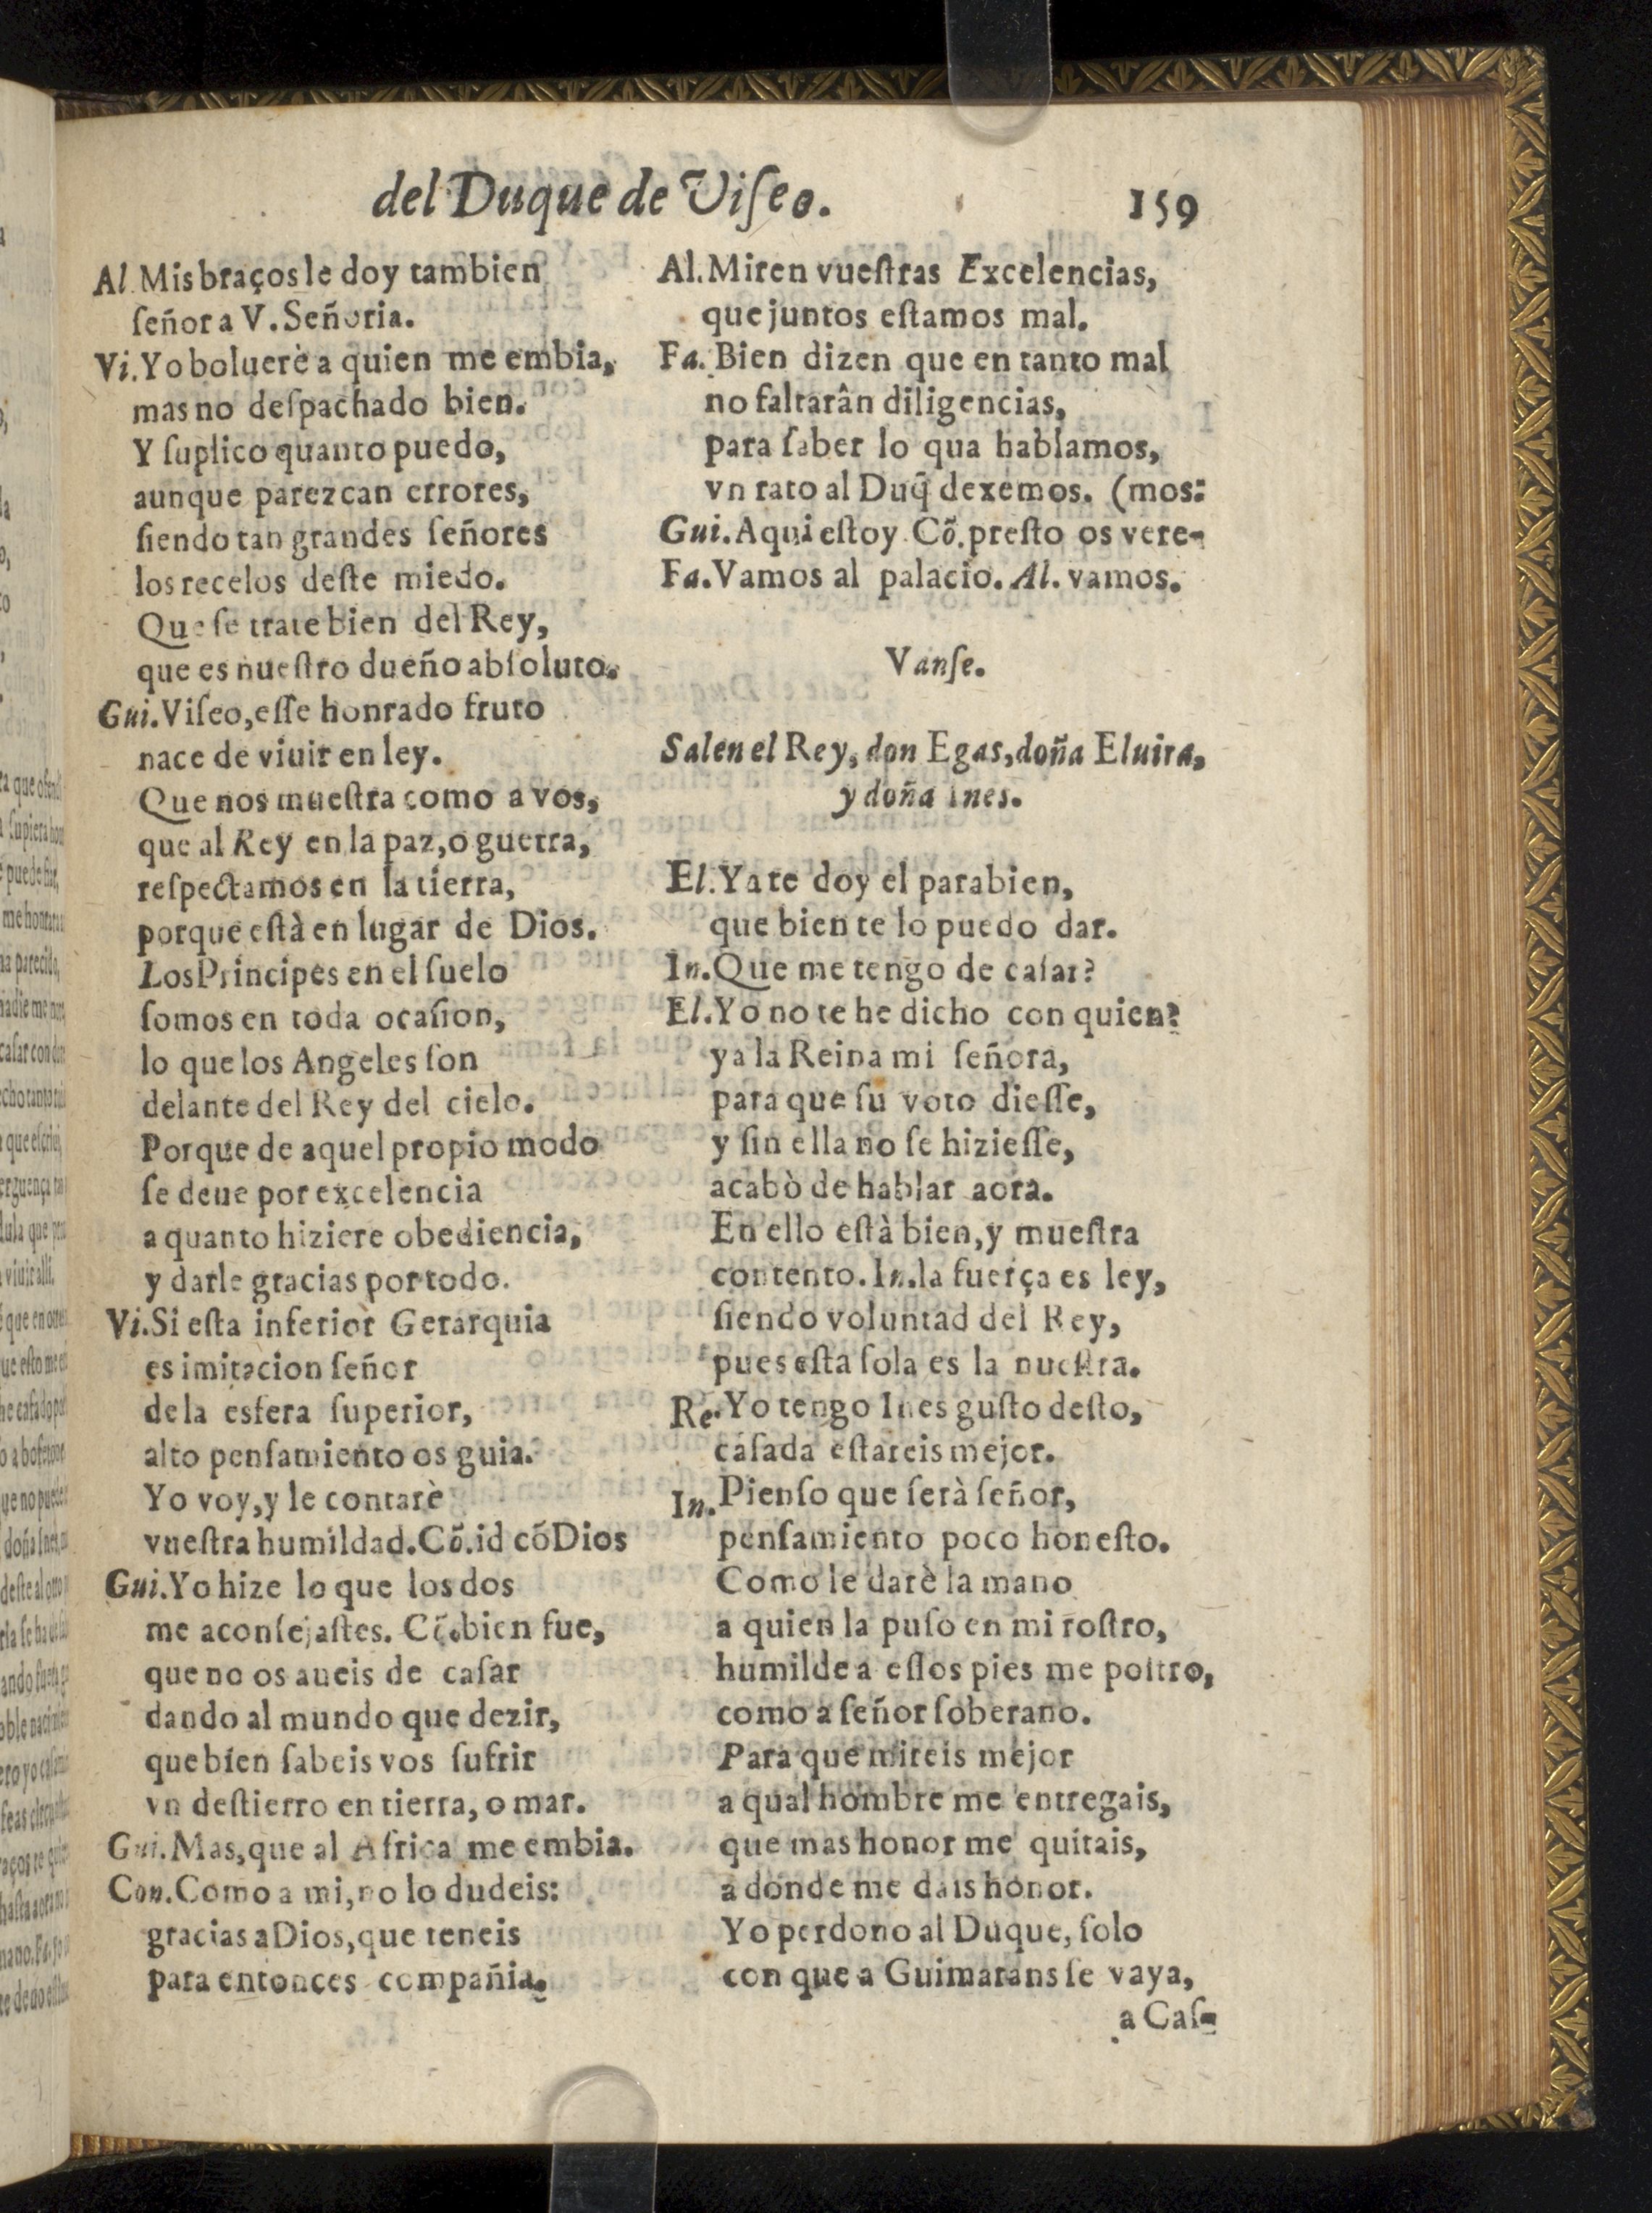 del Duque de Viſeo. 159
Al Mis braços le doy tambien
ſeñor a V. Señoria.
Vi. Yo boluerè a quien me embia,
mas no deſpachado bien.
Y ſuplico quanto puedo,
aunque parezcan errores,
ſiendo tan grandes ſeñores
los recelos deſte miedo.
Que ſe trate bien del Rey,
que es nueſtro dueño abſoluto.
Gui. Viſeo, eſſe honrado fruto
nace de viuir en ley.
Que nos mueſtra como a vos,
que al Rey en la paz, o guerra,
reſpectamos en la tierra,
porque eſtà en lugar de Dios.
Los Principes en el ſuelo
ſomos en toda ocaſion,
lo que los Angeles ſon
delante del Rey del cielo.
Porque de aquel propio modo
ſe deue por excelencia
a quanto hiziere obediencia,
y darle gracias por todo.
Vi. Si eſta inferior Gerarquia
es imitacion ſeñor
de la esfera ſuperior,
alto penſamiento os guia.
Yo voy, y le contarè
vueſtra humildad. Cõ. id cõ Dios
Gui. Yo hize lo que los dos
me aconſejaſtes. Cõ. bien fue,
que no os aueis de caſar
dando al mundo que dezir,
que bien ſabeis vos ſufrir
vn deſtierro en tierra, o mar.
Gui. Mas, que al Africa me embia.
Con. Como a mi, no lo dudeis:
gracias a Dios, que teneis
para entonces compañia.
Al. Miren vueſtras Excelencias,
que juntos eſtamos mal.
Fa. Bien dizen que en tanto mal
no faltarân diligencias,
para ſaber lo qua hablamos,
vn rato al Duq̃ dexemos. (mos:
Gui. Aqui eſtoy. Cõ. preſto os vere-
Fa. Vamos al palacio. Al. vamos.
Vanſe.
Salen el Rey, don Egas, doña Eluira,
y doña Ines.
El. Ya te doy el parabien,
que bien te lo puedo dar.
In. Que me tengo de caſar?
El. Yo no te he dicho con quien?
ya la Reina mi ſeñora,
para que ſu voto dieſſe,
y ſin ella no ſe hizieſſe,
acabò de hablar aora.
En ello eſtà bien, y mueſtra
contento. In. la fuerça es ley,
ſiendo voluntad del Rey,
pues eſta ſola es la nueſtra.
Re. Yo tengo Ines guſto deſto,
caſada eſtareis mejor.
In. Pienſo que ſerà ſeñor,
penſamiento poco honeſto.
Como le darè la mano
a quien la puſo en mi roſtro,
humilde a eſſos pies me poſtro,
como a ſeñor ſoberano.
Para que mireis mejor
a qual hombre me entregais,
que mas honor me quitais,
a donde me dais honor.
Yo perdono al Duque, ſolo
con que a Guimarans ſe vaya,
a Caſ-